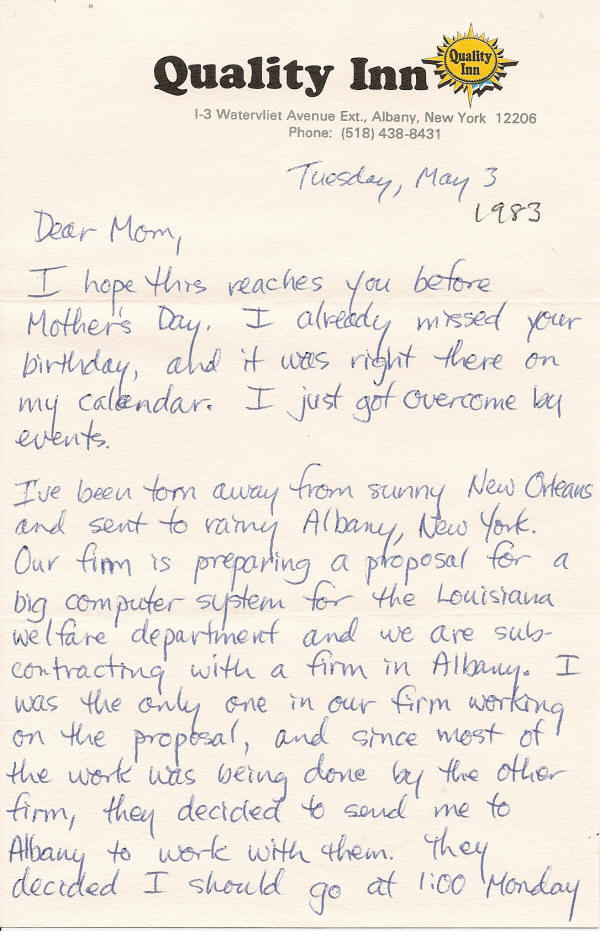 Quality Inn
Quality
Inn
I-3 Watervliet Avenue Ext., Albany, New York 12206
Phone: (518) 438-8431
Tuesday, May 3
1983
Dear Mom,
I hope this reaches you before
Mother's Day. I already missed your
birthday, and it was right there on
my calendar. I just got overcome by
events.
I've been torn away from sunny New Orleans
and sent to rainy Albany, New York.
Our firm is preparing a proposal for a
big computer system for the Louisiana
welfare department and we are sub-
contracting with a firm in Albany. I
was the only one in our firm working
on the proposal, and since most of
the work was being done by the other
firm, they decided to send me to
Albany to work with them. They
decided I should go at 1:00 Monday